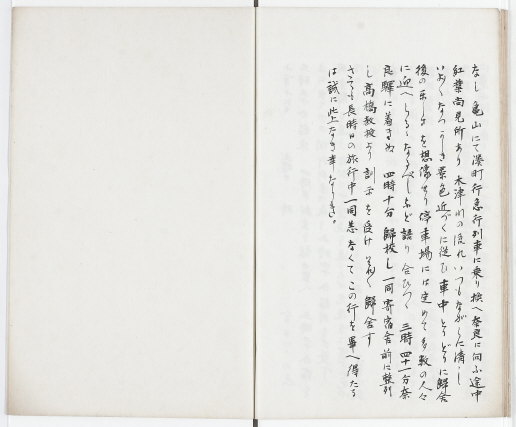 なし 亀山にて湊町行急行列車に乗り換へ奈良に向ふ途中
紅葉尚見所あり 木津川の流れ いつもながらに清し
いよ／＼なつかしき景色近づくに従ひ 車中とり／″＼に歸舍
後の楽しさを想像せり 停車場には定めて多数の人々
に迎へらるゝなるべしなど語り合ひつゝ 三時四十一分奈
良驛に着きぬ 四時十分歸校し一同寄宿舍前に整列
し高橋教授より訓示を受け それ／″＼歸舍す
さても長時日の旅行中一同恙なくてこの行を畢へ得たる
は誠に此上なき幸なりき。